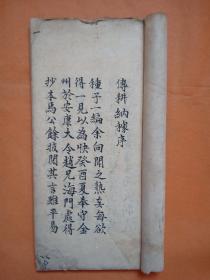 傳耕納據序
種子一編余向聞之熟矣每欲
得一見以為快癸酉夏奉守金
州於安康大令趙兄海門處得
抄本馬公餘披閱其言雖平易